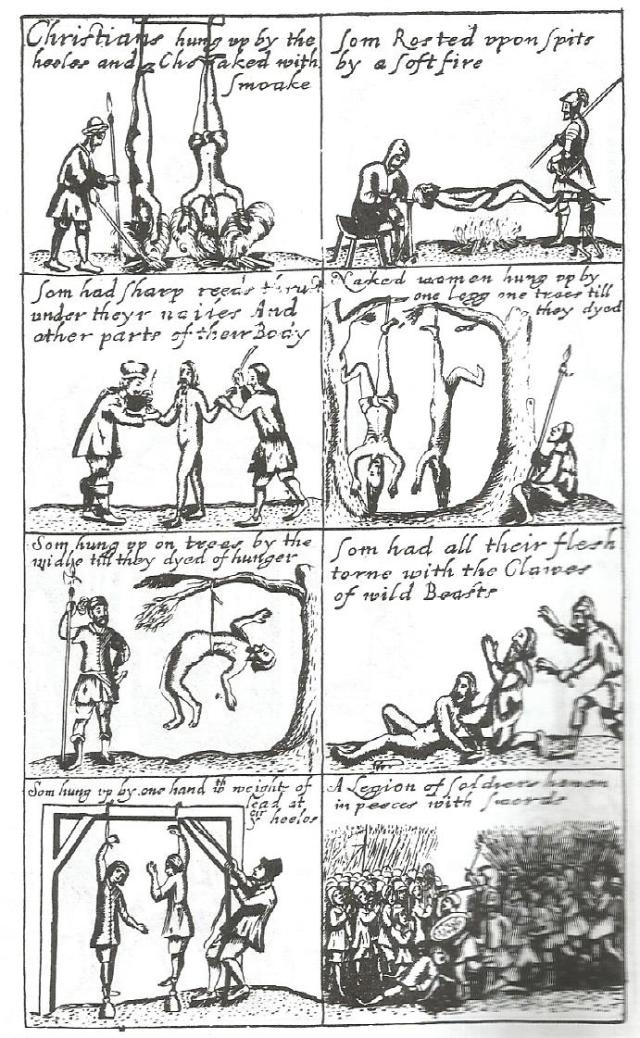 Christians hung up by the
heeles and Choaked with
Smoake
Som Rosted vpon Spits
by a soft fire
Som had sharp reeds thrust
under theyr nailes And
other parts of their Body
Naked women hung up by
one legg one trees till
they dyed
Som hung up on trees by the
midle till they dyed of hunger
Som had all their flesh
torne with the Clawes
of wild Beasts
Som hung vp by one hand wth weights of
lead at
heeles
A Legion of Soldiers
in peeces with Swords